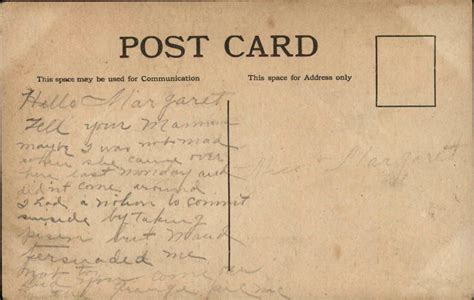 POST CARD
This space may be used for Communication
This space for Address only
Hello Margaret
Tell your Mamma
maybe I was not mad
when she came over
here last Monday and
didn't come around
I had a notion to commit
suicide by taking
pisen but Maud
persuaded me
not to
Margaret